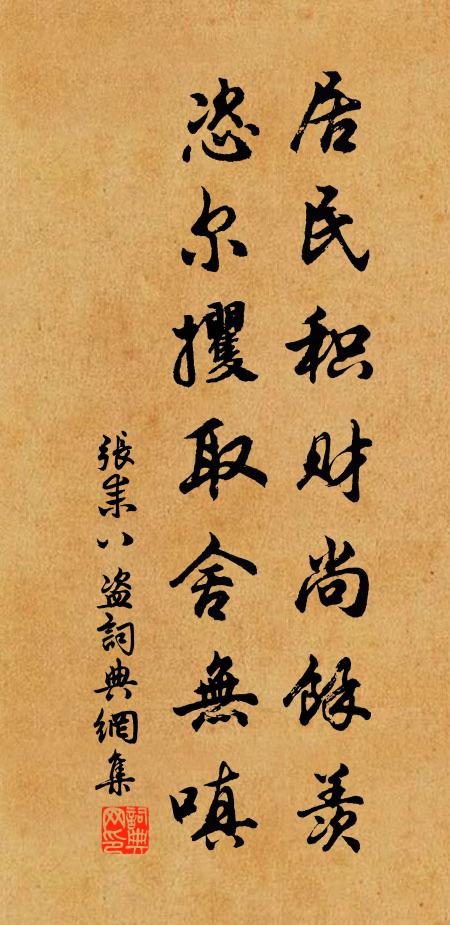 居民积财尚馀羡
恣尔攫取舍無嗔
張耒八盗詞典網集
詞典网印